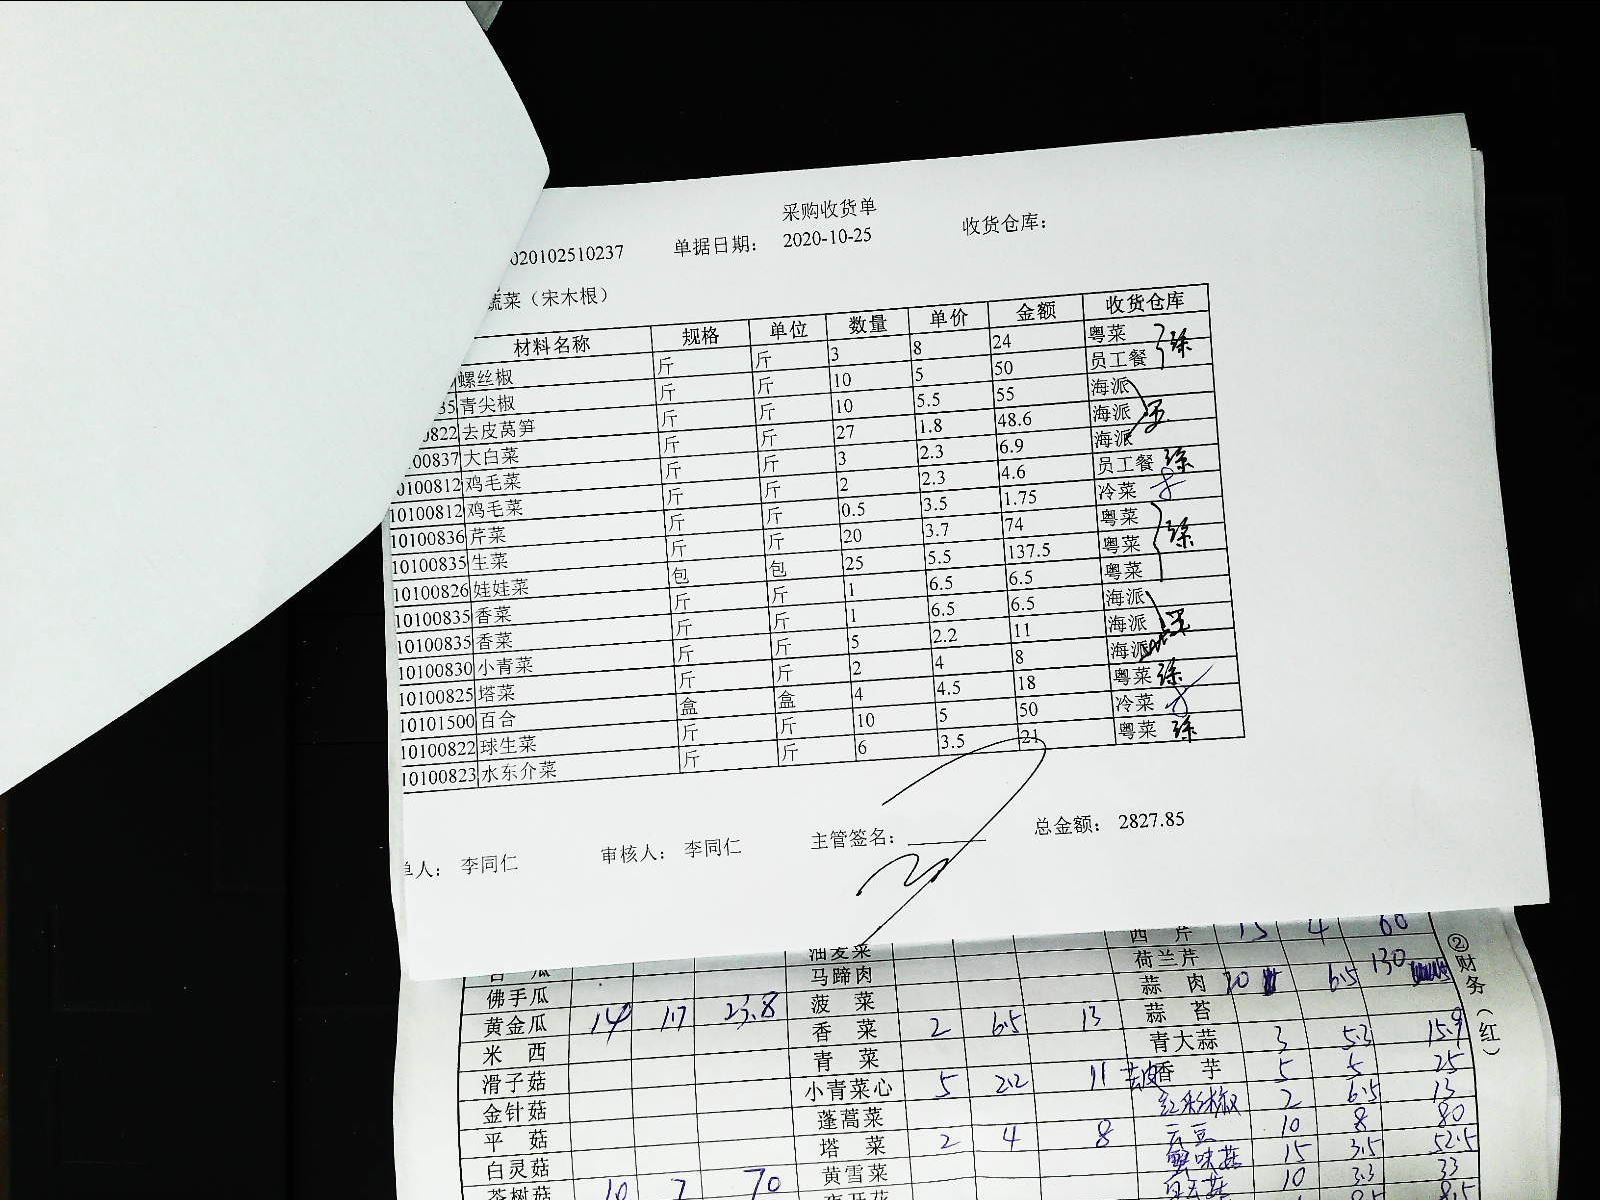 采购收货单
020102510237 单据日期： 2020-10-25 收货仓库：
蔬菜（宋木根）
材料名称 规格 单位 数量 单价 金额 收货仓库
螺丝椒 斤 斤 3 8 24 粤菜 徐
35 青尖椒 斤 斤 10 5 50 员工餐
0822 去皮莴笋 斤 斤 10 5.5 55 海派
00837 大白菜 斤 斤 27 1.8 48.6 海派
0100812 鸡毛菜 斤 斤 3 2.3 6.9 海派
10100812 鸡毛菜 斤 斤 2 2.3 4.6 员工餐 徐
10100836 芹菜 斤 斤 0.5 3.5 1.75 冷菜
10100835 生菜 斤 斤 20 3.7 74 粤菜 徐
10100826 娃娃菜 包 包 25 5.5 137.5 粤菜
10100835 香菜 斤 斤 1 6.5 6.5 粤菜
10100835 香菜 斤 斤 1 6.5 6.5 海派
10100830 小青菜 斤 斤 5 2.2 11 海派
10100825 塔菜 斤 斤 2 4 8 海派
10101500 百合 盒 盒 4 4.5 18 粤菜 徐
10100822 球生菜 斤 斤 10 5 50 冷菜
10100823 水东介菜 斤 斤 6 3.5 21 粤菜 徐
单人： 李同仁 审核人： 李同仁 主管签名： 总金额： 2827.85
油麦菜 西芹 15 4 60
瓜 马蹄肉 荷兰芹
佛手瓜 菠菜 蒜肉 20 6.5 130
黄金瓜 14 1.7 23.8 香菜 2 6.5 13 蒜苔
米西 青菜 青大蒜 3 5.3 15.9
滑子菇 小青菜心 5 2.2 11 去皮香芋 5 5 25
金针菇 蓬蒿菜 红彩椒 2 6.5 13
平菇 塔菜 2 4 8 云豆 10 8 80
白灵菇 黄雪菜 蟹味菇 15 3.5 52.5
茶树菇 10 7 70 白玉菇 10 3.3 33
②财务（红）